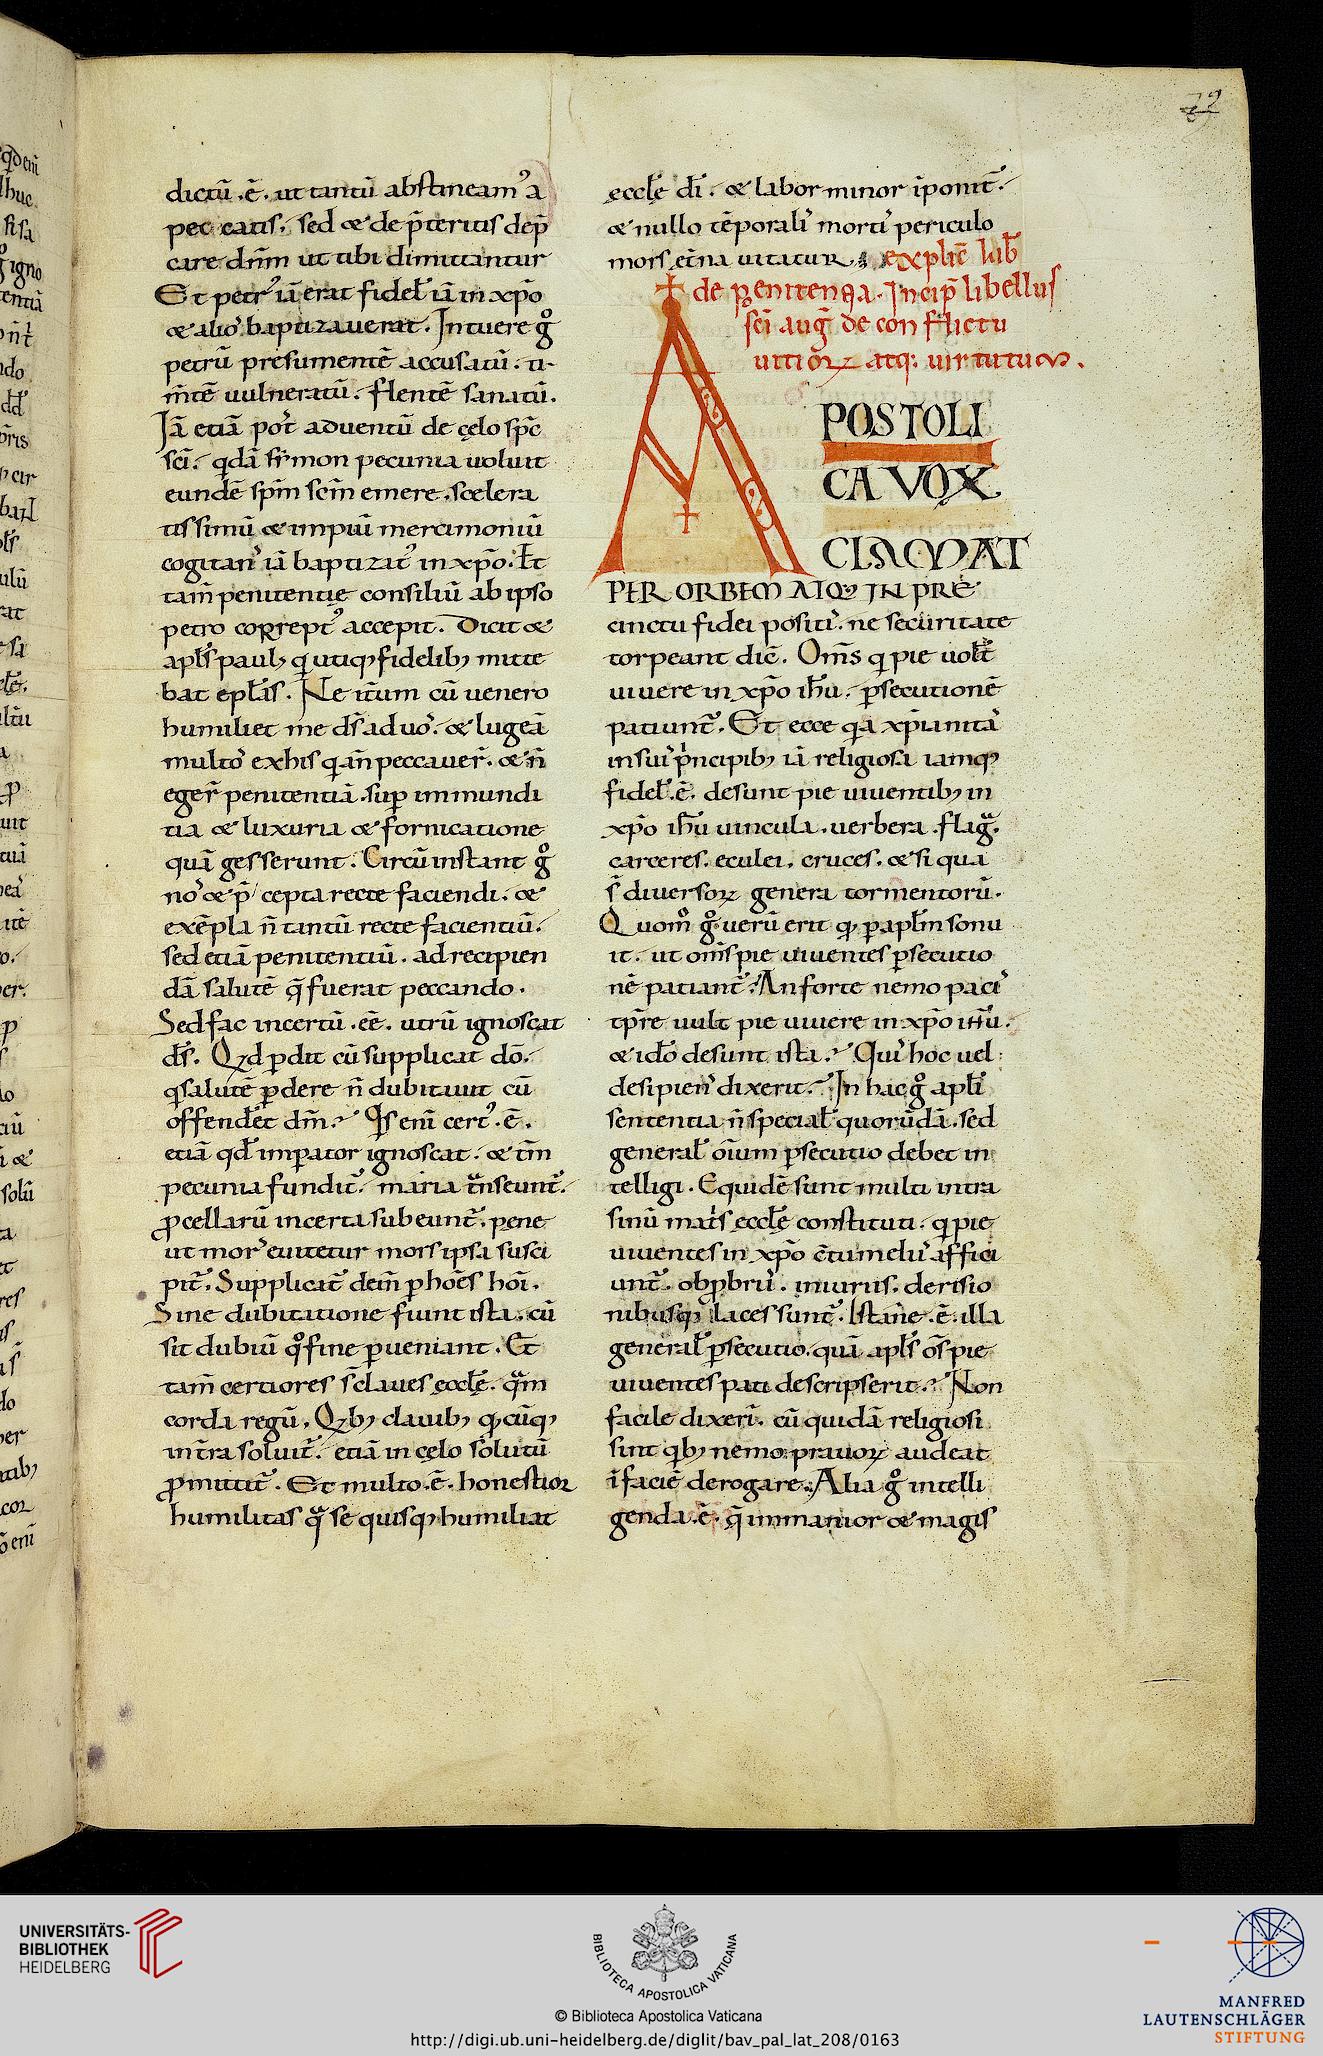 dictū .ē. ut tantū abstineam᾽ a
peccatis. sed & de p̄teritis dep̄
care dn̄m ut tibi dimittantur
Et petr᾽ iā erat fidel̄ iā in xp̄o
& alio᾽ baptizauerat. Intuere gͦ
petrū presumentē accusatū. ti-
m̄tē uulneratū. flentē sanatū.
Iā etiā pot᾽ aduentū de cęlo sp̄c
sc̄i. qdā simon pecunia uoluit
eundē sp̄m sc̄m emere. scelera
tissimū & impiū mercimoniū
cogitan᾽ iā baptizat᾽ in xp̄o. Et
tam̄ penitentię consiliū ab ipso
petro correpť accepit. Dicit &
apl̄s paulꝫ q utiqꝫ fidelibꝫ mitte
bat epl̄as. Ne it̄um cū uenero
humiliet me ds̄ ad uo᾽. & lugeā
multo᾽ ex his qi an̄ peccauer̄. & n̄
eger̄ penitentiā. sup immundi
tia & luxuria & fornicatione
quā gesserunt. Circūinstant gͦ
no᾽ & p̄cepta recte faciendi. &
exēpla n̄ tantū recte facientiū.
sed etiā penitentiū. ad recipien
dā salutē q̄ fuerat peccando.
Sed fac incertū .ēē. utrū ignoscat
ds̄. Qd pdit cū supplicat dō.
q salutē pdere n̄ dubitauit cū
offendet̄ dm̄? Qis eni cert᾽ .ē.
etiā qd̄ impator ignoscat. & tm̄
pecunia fundit̄. maria t̄nseunt̄.
ꝓcellarū incerta subeunt̄. pene
ut mor᾽ euitetur mors ipsa susci
pit̄. Supplicat̄ dein̄ p hoēs hoī.
Sine dubitatione fiunt ista. cū
sit dubiū qͦ fine pueniant. Et
tam̄ certiores s̄ claues eccl̄ę. qām
corda regū. Qbꝫ clauibꝫ qꝫ cūqꝫ
in t̄ra soluit̄. etiā in cęlo solutū
ꝓmittit̄. Et multo .ē. honestior
humilitas qā se quisqꝫ humiliat
eccl̄e dī. & labor minor īponit̄.
& nullo tēporali᾽ morti᾽ periculo
mors et̄na uitatur. explic̄ lib̄
de penitentia. Incip̄ libellus
sc̄i aug̅ de conflictu
uitiōꝝ atqꝫ uirtutum.
A
POSTOLI
CA VOX
CLAMAT
PER ORBEM ATQꝫ IN PRE
cinctu fidei positi᾽. ne securitate
torpeant dic̄. Om̄s q pie uol̄t
uiuere in xp̄o ih̄u. psecutionē
patiunt̄. Et ecce qa xp̄ianita᾽
in sui᾽ pncipibꝫ iā religiosa iamqꝫ
fidel̄ .ē. desunt pie uiuentibꝫ in
xp̄o ih̄u uincula. uerbera. flaḡ.
carceres. eculei. cruces. & si qua
s̄ diuersoꝝ genera tormentorū.
Quom̊ gͦ uerū erit qꝫ p apl̄m sonu
it. ut om̄s pie uiuentes psecutio
nē patiant̄? An forte nemo paci᾽
tp̄re uult pie uiuere in xp̄o ih̄u.
& idō desunt ista? Qui᾽ hoc uel
desipien᾽ dixerit? In hac gͦ apl̄i
sententia n̄ special̄ quorūdā. sed
general̄ oīum psecutio debet in
telligi. Equidē sunt multi intra
sinū mat̄s eccl̄ę constituti. q pie
uiuentes in xp̄o c̄tumelii᾽ affici
unt̄. obꝓbrii᾽. iniuriis. derisio
nibusqꝫ lacessunt̄. Istane .ē. illa
general̄ psecutio. quā apl̄s os̄ pie
uiuentes pati descripserit? Non
facile dixeri᾽. cū quidā religiosi
sint qbꝫ nemo prauoꝝ audeat
ī faciē derogare. Alia gͦ intelli
genda .ē. q̄ immanior & magis
UNIVERSITÄTS-
BIBLIOTHEK
HEIDELBERG
BIBLIOTECA APOSTOLICA VATICANA
© Biblioteca Apostolica Vaticana
http://digi.ub.uni-heidelberg.de/diglit/bav_pal_lat_208/0163
MANFRED
LAUTENSCHLÄGER
STIFTUNG